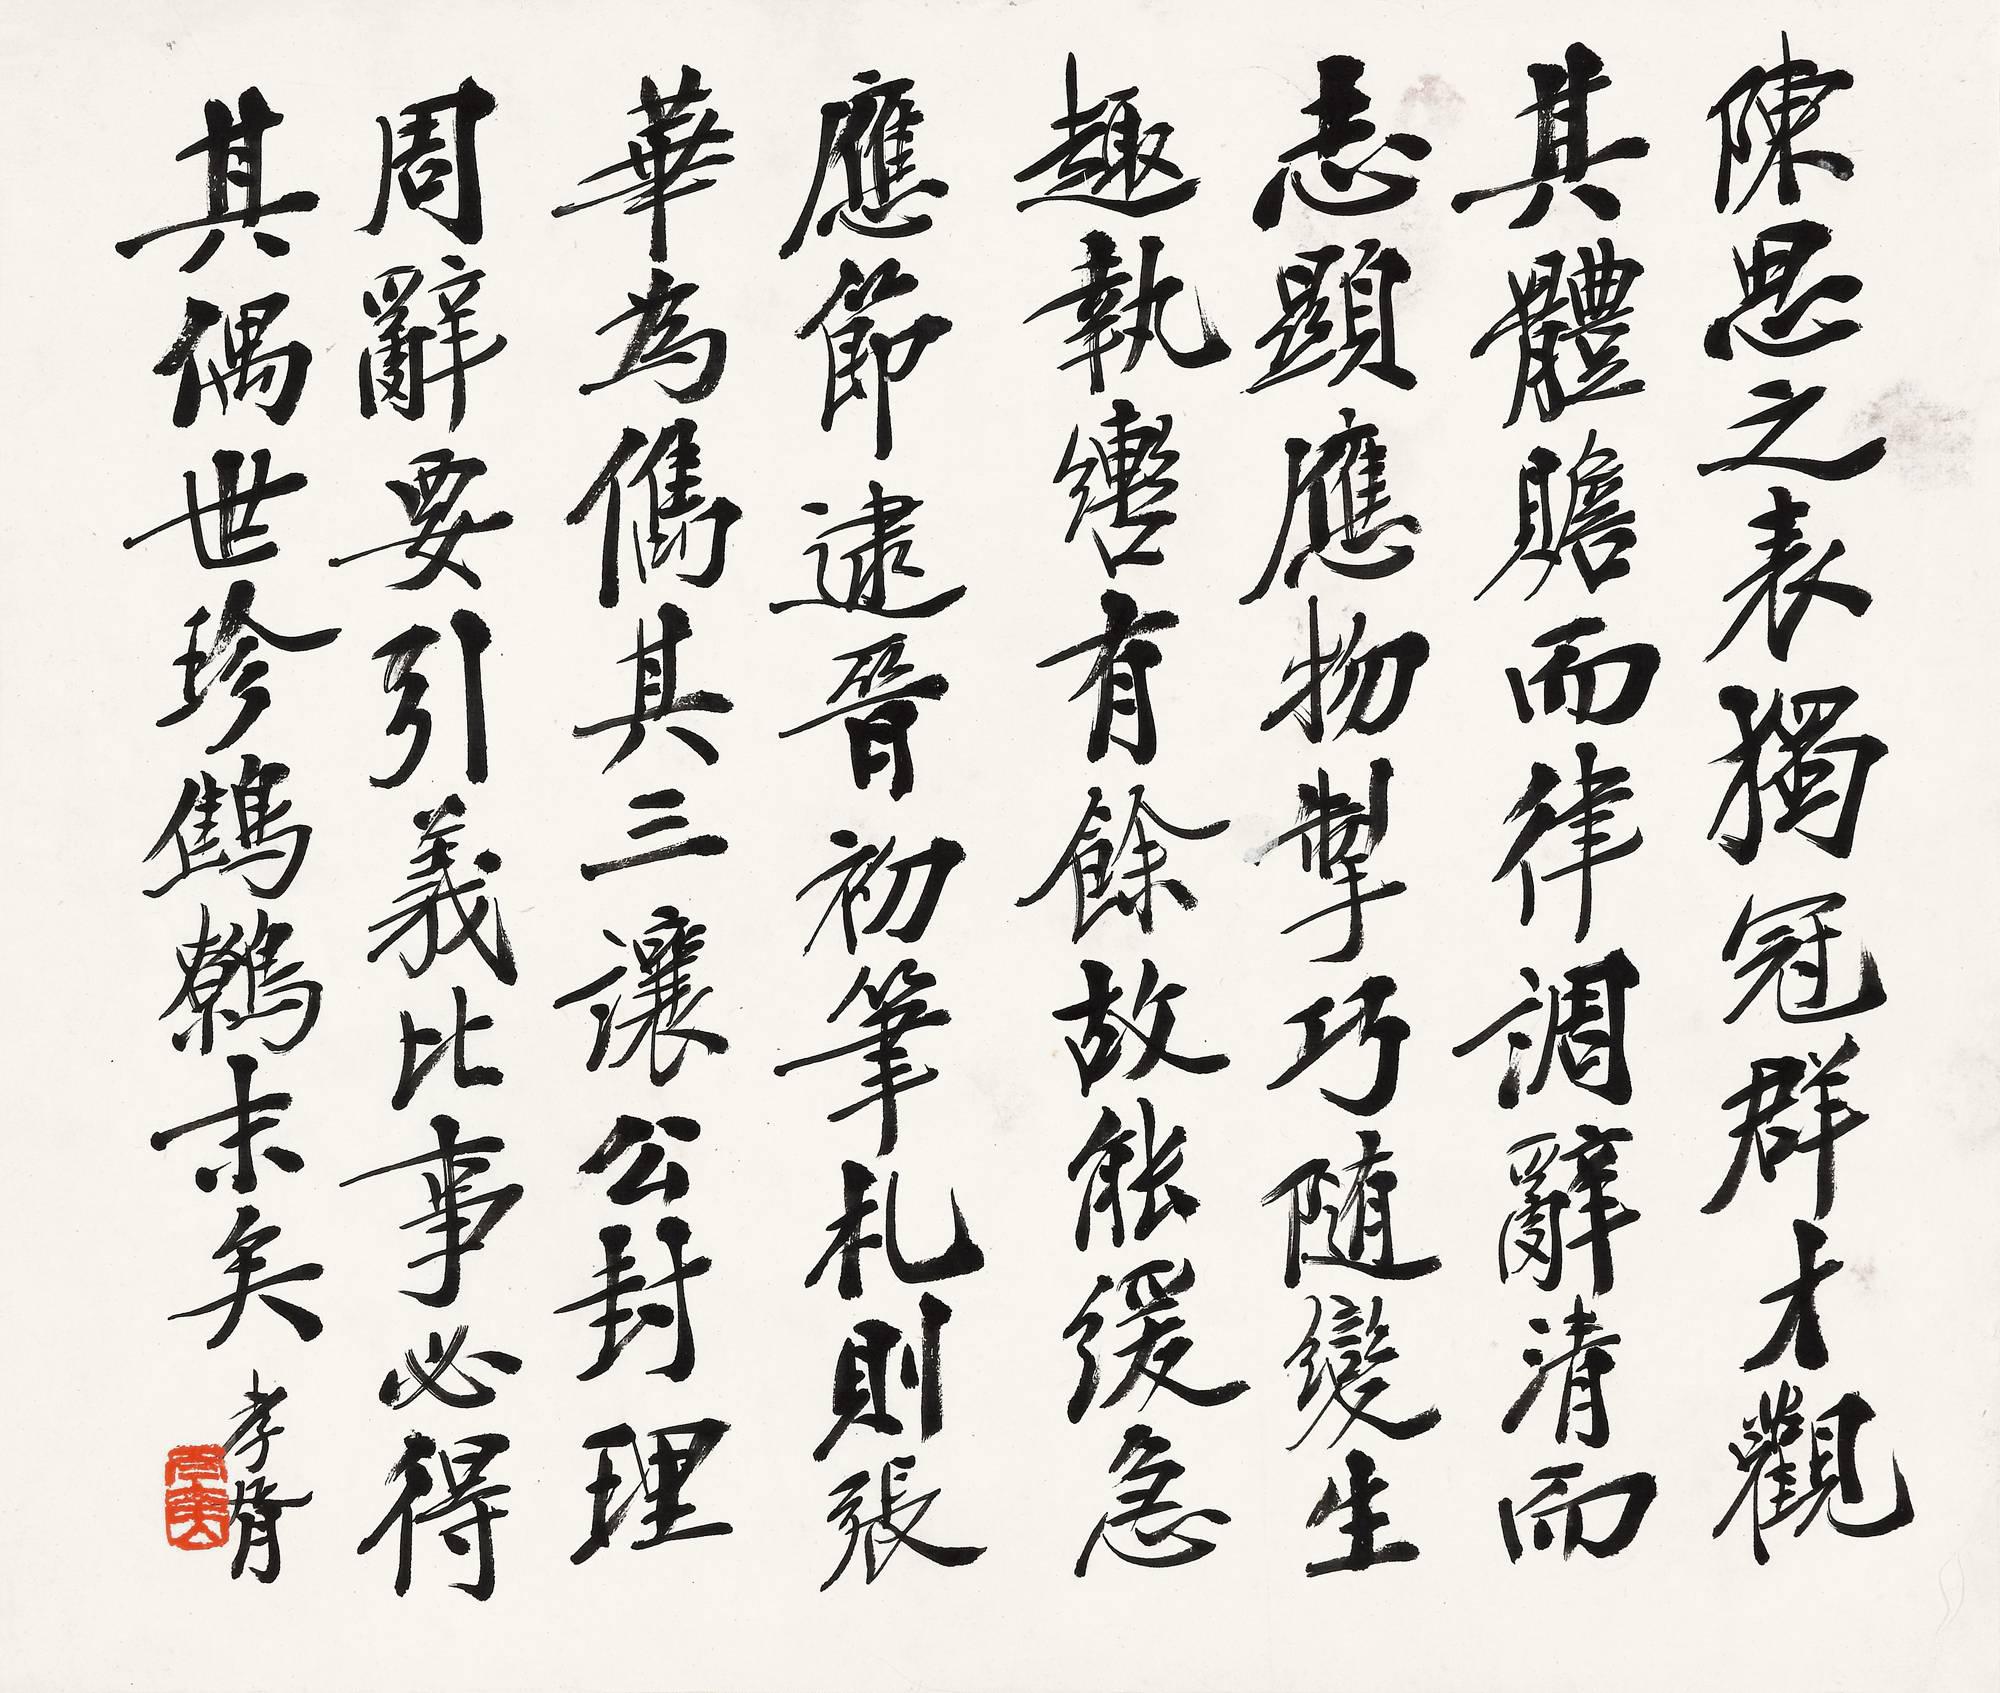 陳思之表獨冠群才觀
其體贍而律調辭清而
志顯應物掣巧隨變生
趣執轡有餘故能緩急
應節逮晉初筆札則張
華為儁其三讓公封理
周辭要引義比事必得
其偶世珍鷦鷯末矣
孝胥